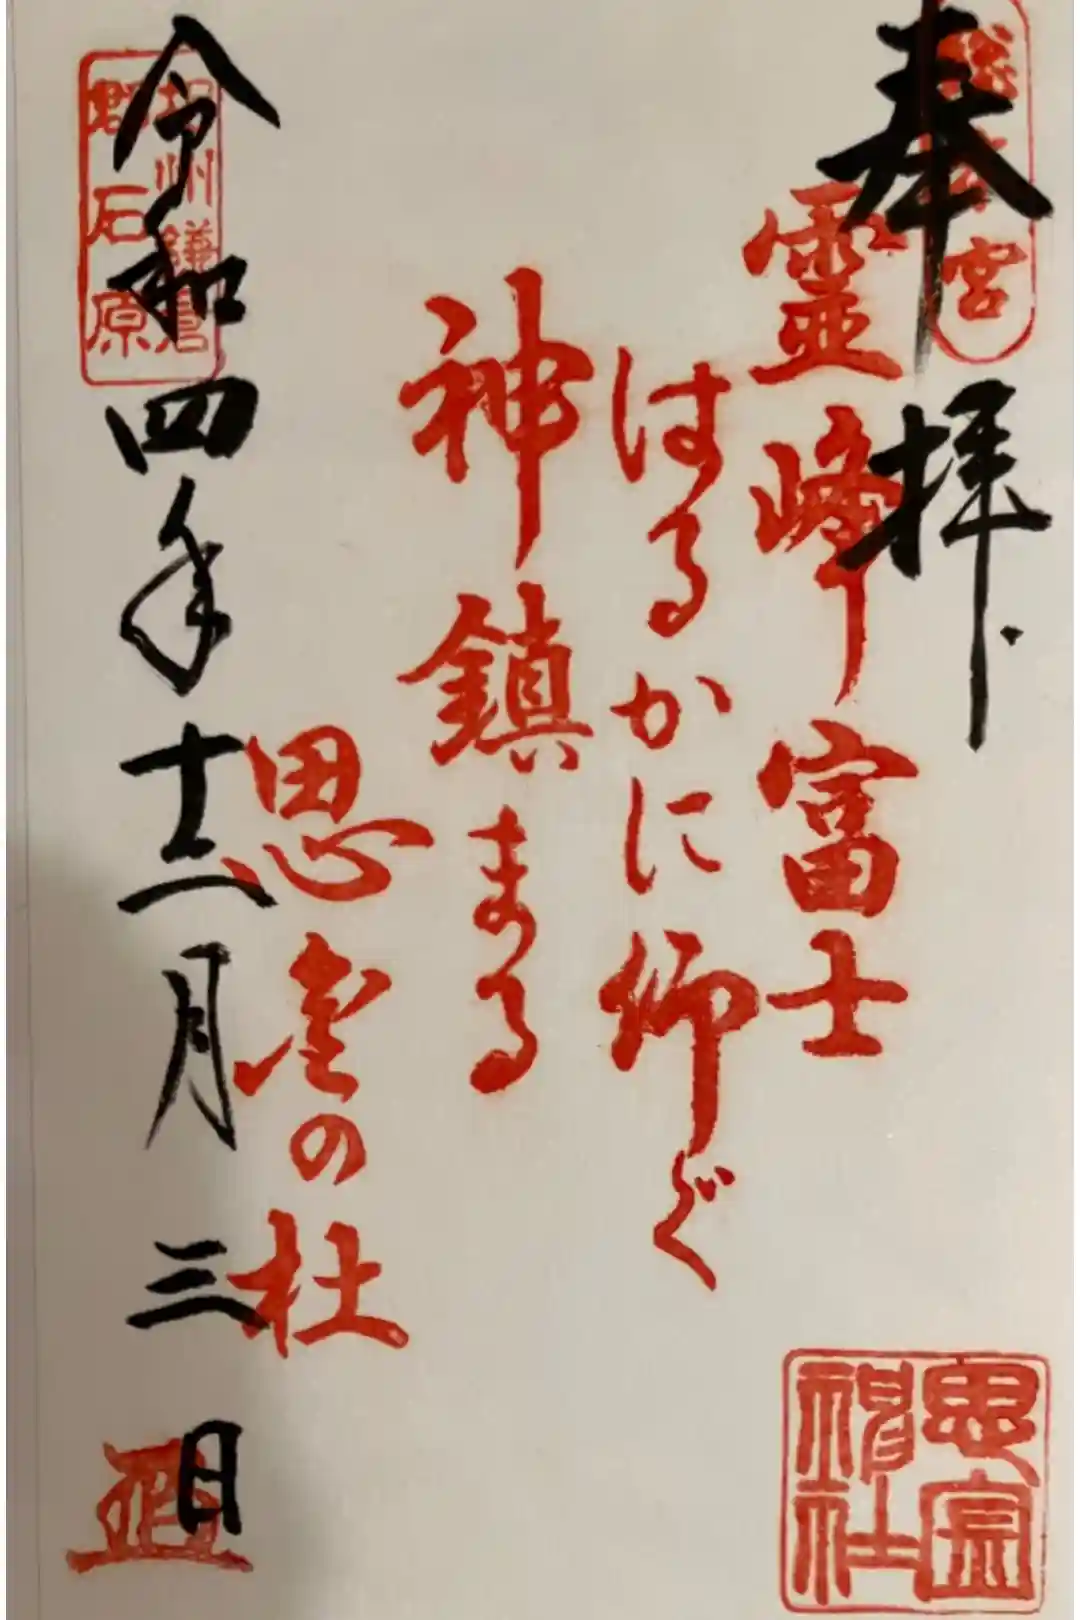 奉拝
総本宮
靈峰富士
はるかに仰ぐ
神鎮まる
思金の杜
令和四年十二月三日
相州鎌倉
郡石原
思金
神社